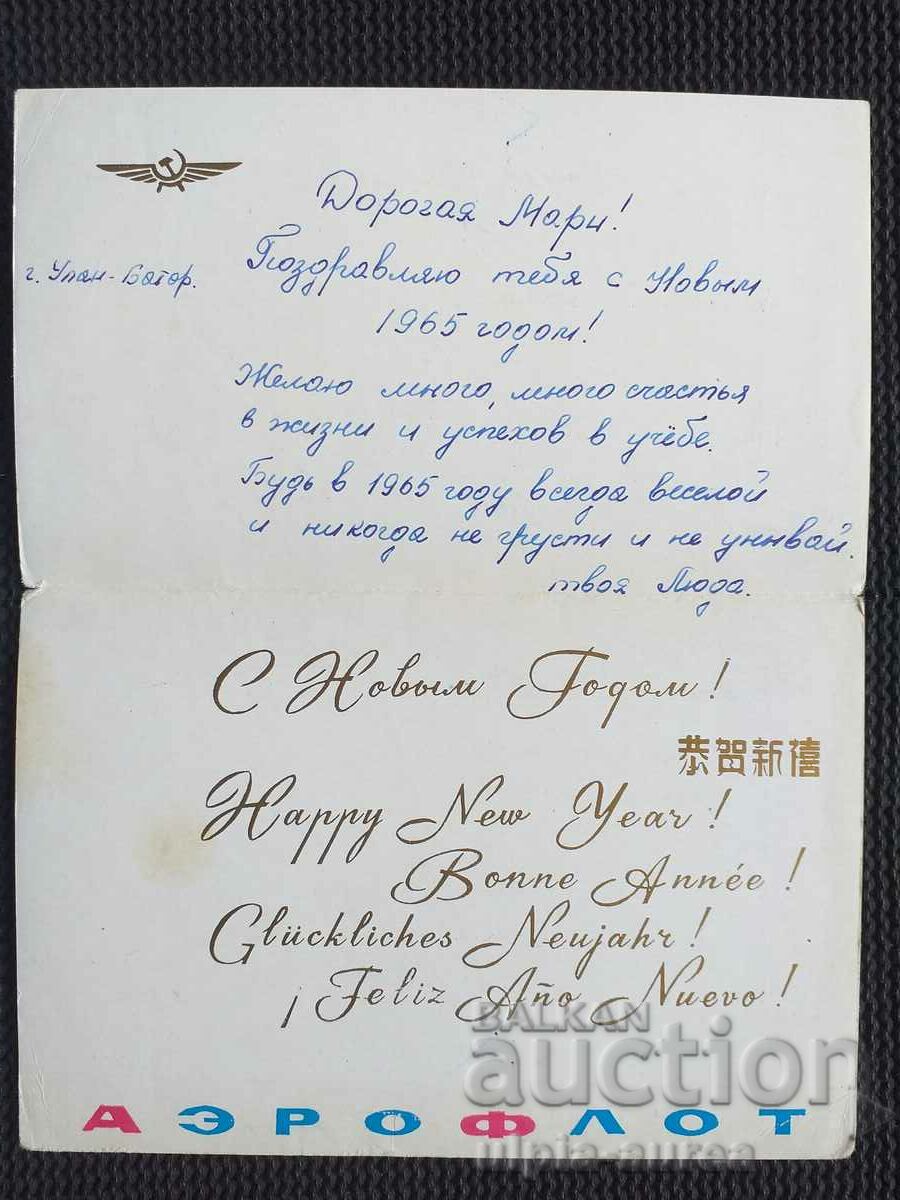 Дорогая Мари!
г. Улан-Батор.
Поздравляю тебя с Новым
1965 годом!
Желаю много, много счастья
в жизни и успехов в учёбе.
Будь в 1965 году всегда веселой
и никогда не грусти и не унывай.
твоя Люда.
С Новым Годом!
恭贺新禧
Happy New Year!
Bonne Année!
Glückliches Neujahr!
¡Feliz Año Nuevo!
BALKAN
auction
АЭРОФЛОТ
ulpia-aurea